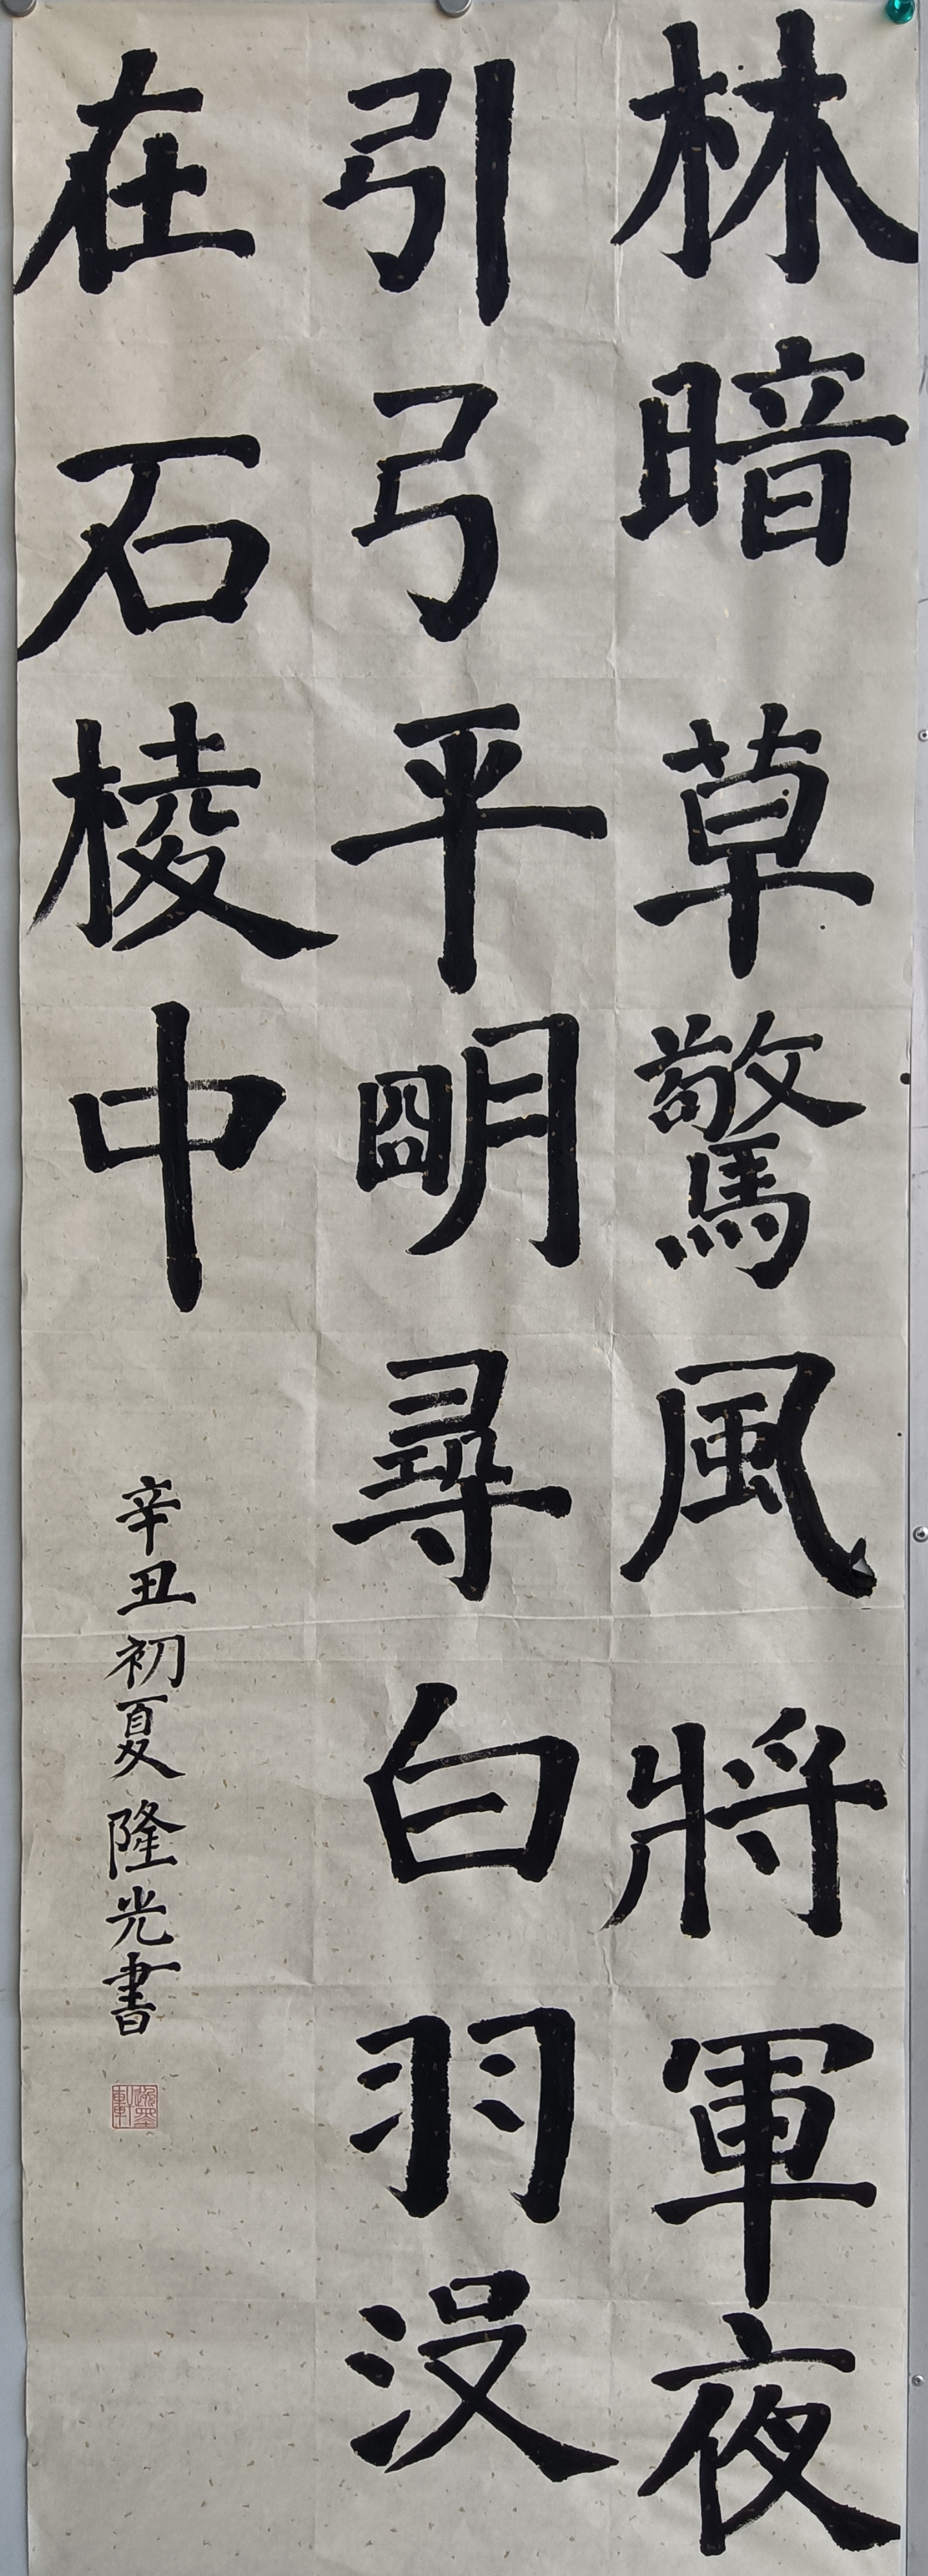 林暗草驚風將軍夜
引弓平明尋白羽没
在石棱中
辛丑初夏隆光書